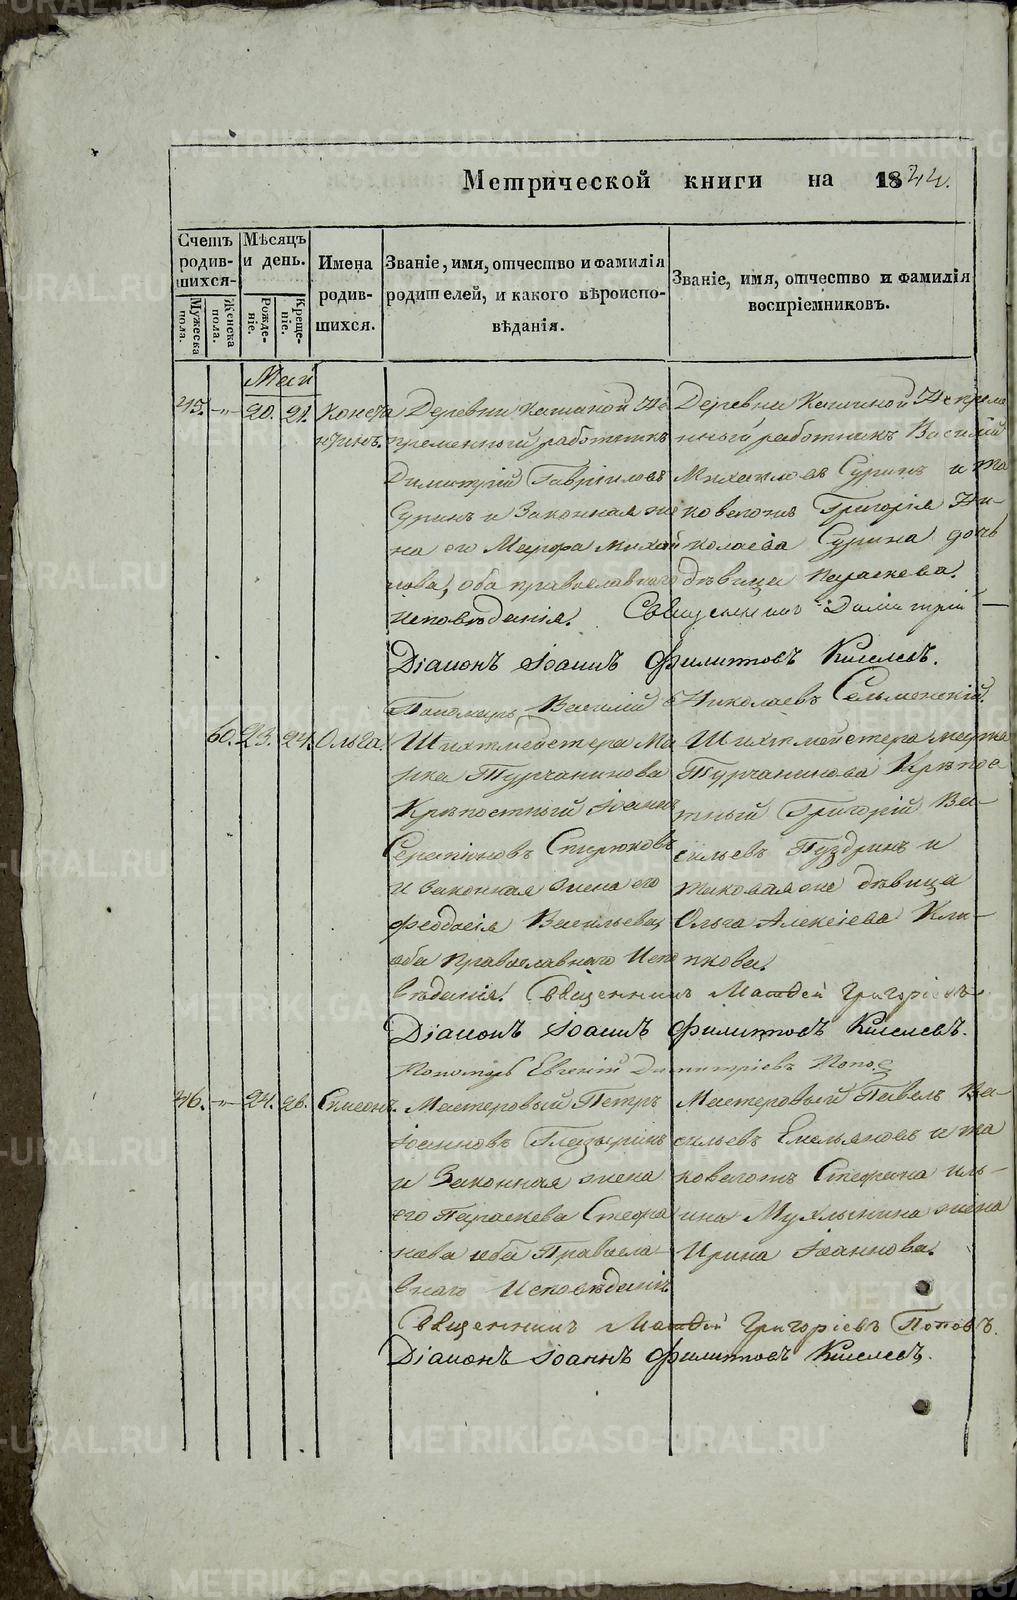 Метрической книги на 1844.
Счетъ родив-шихся-
Мужеска пола.
Женска пола.
Мѣсяцъ и день.
Рожде-ніе.
Креще-ніе.
Имена родив-шихся.
Званіе, имя, отчество и фамилія родителей, и какого вѣроиспо-вѣданія.
Званіе, имя, отчество и фамилія воспріемниковъ.
Май
45. -„- 20. 21. Конста
нтинъ.
Деревни Кашиной Не
пременный работникъ
Димитрій Гавріиловъ
Суринъ и Законная же
на его Марфа Михай
лова, оба православнаго
исповѣданія.
Деревни Кашиной Непреме
нный работникъ Василій
Михаиловъ Суринъ и та
ковогожъ Григорія Ни-
колаева Сурина дочь
дѣвица Параскева.
Священникъ Димитрій
Діаконъ Іоаннъ Филитовъ Киселевъ.
Пономарь Василій Николаевъ Сельменскій.
60. 23. 24. Ольга
Шихтмейстера Ма
рка Турчанинова
Крѣпостный Іоаннъ
Серапіоновъ Стрюковъ
и Законная жена его
Феодосія Васильева,
оба Православнаго Испо
вѣданія.
Шихтмейстера Марка
Турчанинова Крѣпос
тный Григорій Ва-
сильевъ Пуздринъ и
таковаяже дѣвица
Ольга Алексіева Кли-
пкова.
Священникъ Матѳей Григоріевъ
Діаконъ Іоаннъ Филитовъ Киселевъ.
Пономарь Евгеній Димитріевъ Попо
46. -„- 24. 26. Симеонъ.
Мастеровый Петръ
Іоанновъ Глазыринъ
и Законная жена
его Параскева Стефа
нова оба Правосла-
внаго Исповѣданія
Мастеровый Павелъ Ва-
сильевъ Емельяновъ и та
ковагожъ Стефана Иль-
ина Мухлынина жена
Ирина Іоаннова.
Священникъ Матѳей Григоріевъ Поповъ.
Діаконъ Іоаннъ Филитовъ Киселевъ.
METRIKI.GASO-URAL.RU